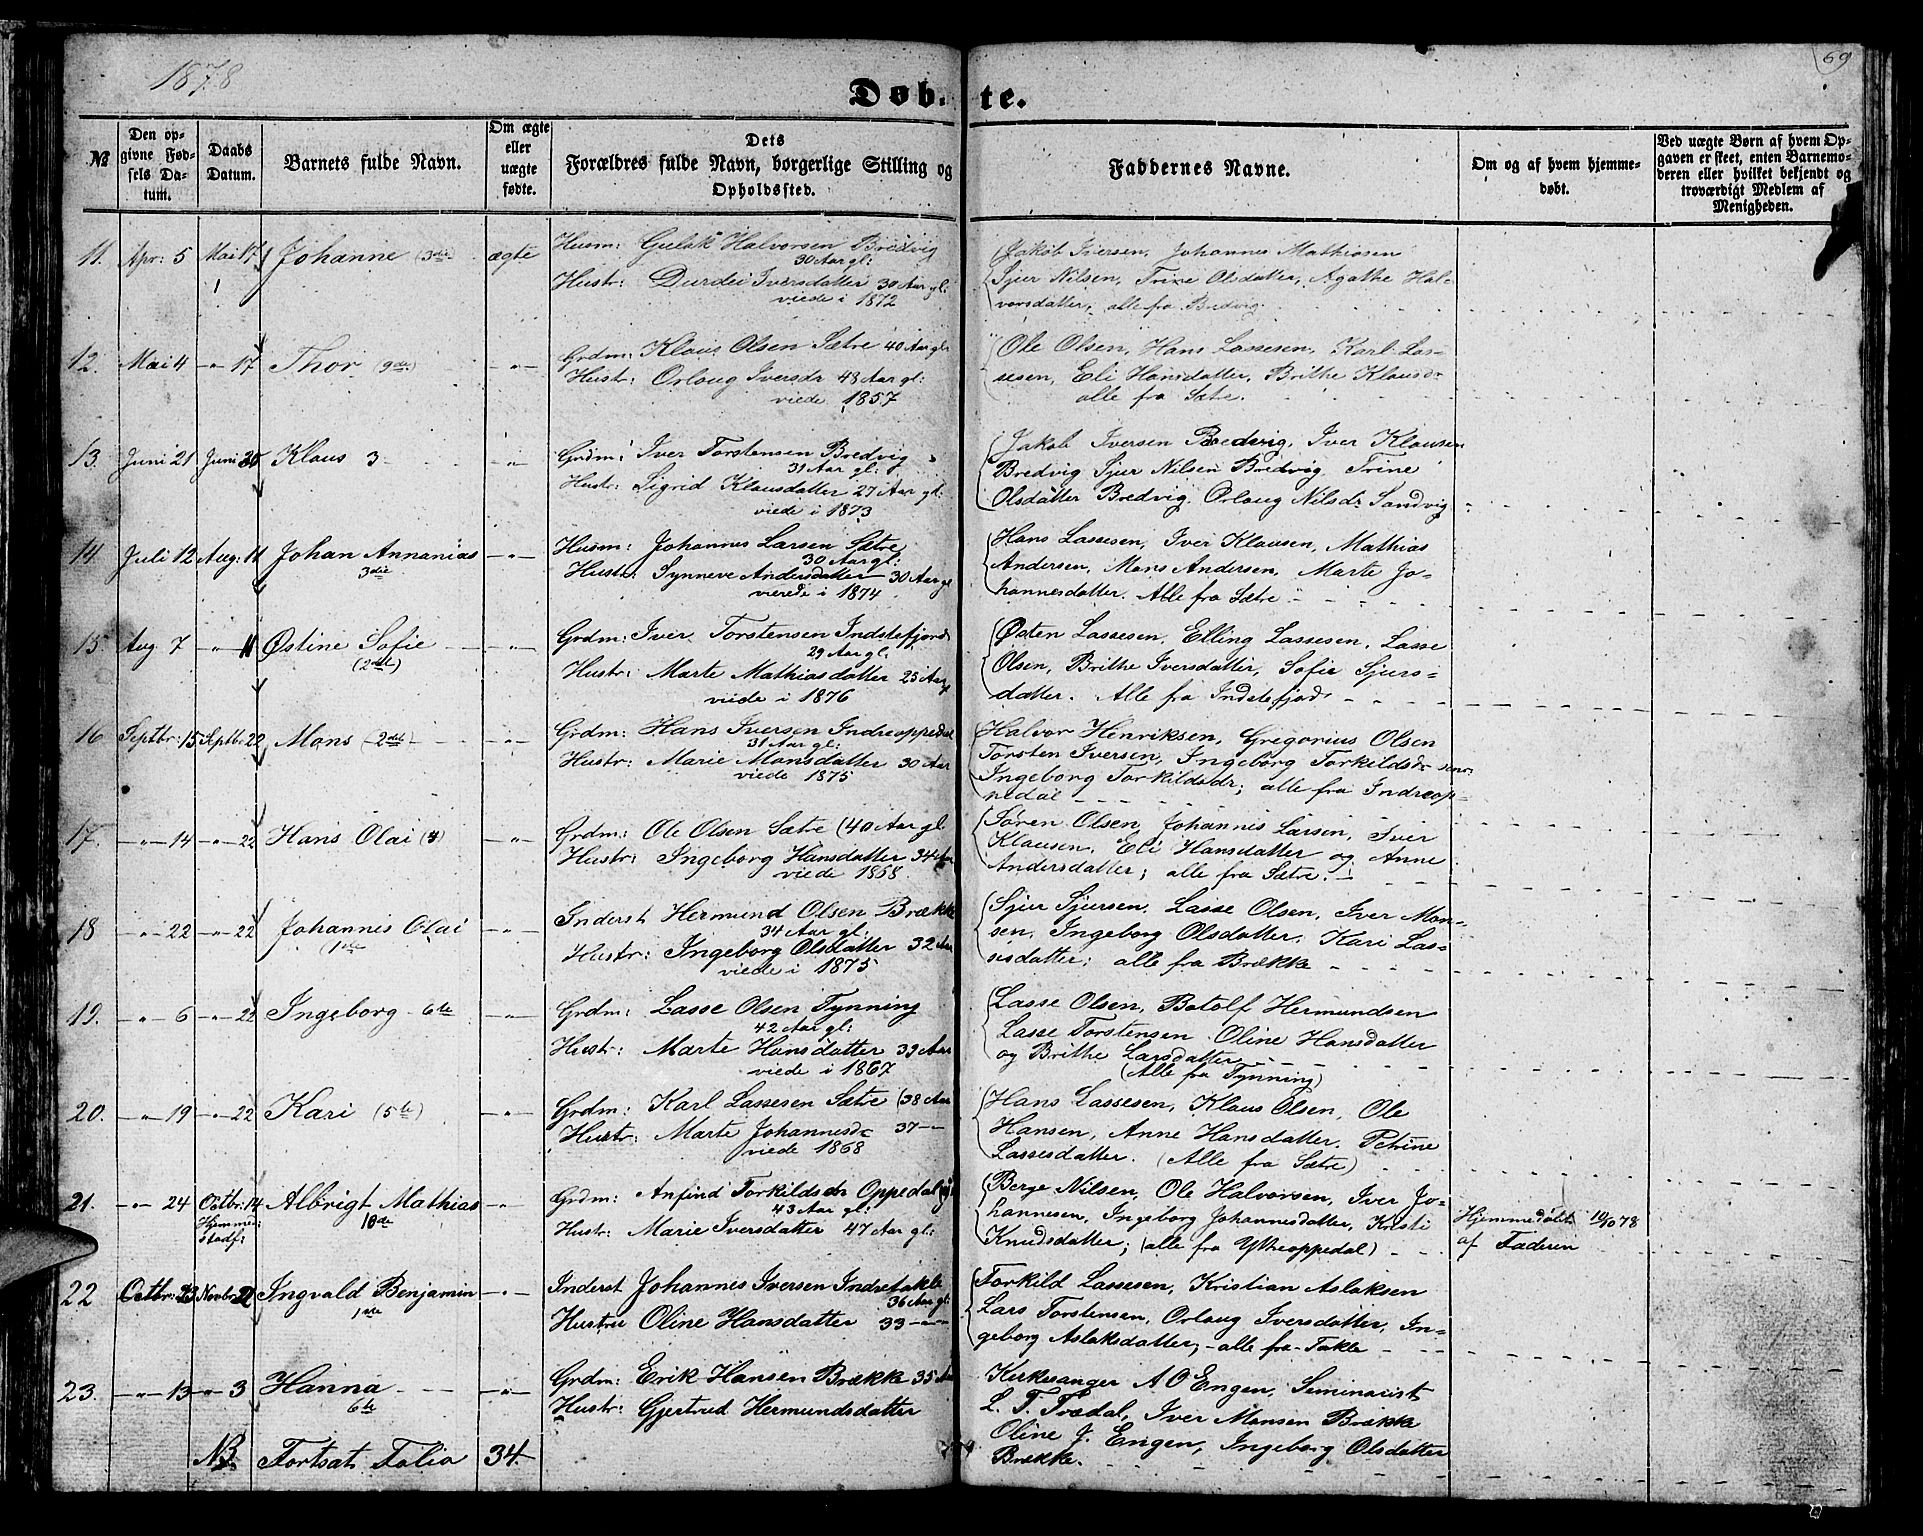 1878
69
Døbte.
№
Den opgivne Fødsels Datum.
Daabs Datum.
Barnets fulde Navn.
Om ægte eller uægte fødte.
Dets Forældres fulde Navn, borgerlige Stilling og Opholdssted.
Faddernes Navne.
Om og af hvem hjemmedøbt.
Ved uægte Børn af hvem Opgaven er skeet, enten Barnemoderen eller hvilket bekjendt og troværdigt Medlem af Menigheden.
11. Apr: 5 Mai 17 Johanne (3die ægte
Husm: Gulak Halvorsen Bredvig
30 Aar gl:
Hustr: Durdei Iversdatter 30 Aar gl:
viede i 1872
Jakob Iversen, Johannes Mathiasen
Sjur Nilsen, Trine Olsdatter, Agathe Hal-
vorsdatter, alle fra Bredvig.
12. Mai 4 -"- 17 Thor (9de) -"-
Grdm: Klaus Olsen Sætre 40 Aar gl:
Hustr: Orloug Iversdr 43 Aar gl:
viede 1857
Ole Olsen, Hans Lassesen, Karl Las-
sesen, Eli Hansdatter, Brithe Klausdr
alle fra Sætre.
13. Juni 21 Juni 30 Klaus 3 -"-
Grdm: Iver Torstensen Bredvig
31 Aar gl:
Hustr: Sigrid Klausdatter 27 Aar gl:
viede i 1873
Jakob Iversen Bredvig, Iver Klausen
Bredvig Sjur Nilsen Bredvig, Trine
Olsdatter Bredvig, Orloug Nilsdr Sandvig
14 Juli 12 Aug: 11 Johan Annanias -"-
3die
Husm: Johannes Larsen Sætre
30 Aar gl:
Hustr: Synneve Andersdatter 30 Aar gl
vierede i 1874
Hans Lassesen, Iver Klausen, Mathias
Andersen, Mons Andersen, Marte Jo-
hannesdatter. Alle fra Sætre
15. Aug 7 -"- 11 Østine Sofie -"-
(2det)
Grdm: Iver Torstensen Indstefjord
29 Aar gl:
Hustr: Marte Mathiasdatter 25 Aar gl
viede i 1876
Østen Lassesen, Elling Lassesen, Lasse
Olsen, Brithe Iversdatter, Sofie Sjurs-
datter. Alle fra Indstefjord
16 Septbr: 15 Septbr 22 Mons (2det -"-
Grdm: Hans Iversen Indreoppedal
31 Aar gl:
Hustr: Marie Monsdatter 30 Aar
viede 1875
Halvor Henriksen, Gregorius Olsen
Torsten Iversen, Ingeborg Torkildsdr senr:
Ingeborg Torkildsdr; alle fra Indreop-
pedal
17. -"- 14 -"- 22 Hans Olai (4) -"-
Grdm: Ole Olsen Sætre (40 Aar gl
Hustr: Ingeborg Hansdatter 34 Aar
viede 1868
Søren Olsen, Johannis Larsen, Iver
Klausen, Eli Hansdatter og Anne
Andersdatter; alle fra Sætre.
18 -"- 22 -"- 22 Johannes Olai -"-
(1ste
Inderst Hermund Olsen Brække
34 Aar gl:
Hustr: Ingeborg Olsdatter 32 Aar
viede i 1875
Sjur Sjursen, Lasse Olsen, Iver Mon-
sen, Ingeborg Olsdatter, Kari Las-
sisdatter; alle fra Brække
19. -"- 6 -"- 22 Ingeborg 6te -"-
Grdm: Lasse Olsen Tynning
42 Aar gl:
Hustr: Marte Hansdatter 39 Aar
viede i 1867
Lasse Olsen, Botolf Hermundsen
Lasse Torstensen Oline Hansdatter
og Brithe Larsdatter
(Alle fra Tynning)
20. -"- 19 -"- 22 Kari (5te) -"-
Grdm: Karl Lassesen Sætre (38 Aar
Hustr: Marte Johannesdr 37 -"-
viede 1868
Hans Lassesen, Klaus Olsen, Ole
Hansen, Anne Hansdatter, Petrine
Lassesdatter. (Alle fra Sætre)
21. -"- 24 Octbr: 14 Albrigt Mathias -"-
Hjemmestadf: 10de
Grdm: Anfind Torkildsdr Oppedal
43 Aar gl:
Hustr: Marie Iversdatter 47 Aar gl:
Berge Nilsen, Ole Halvorsen, Iver Jo-
hannesen, Ingeborg Johannesdatter, Kristi
Knudsdatter; (alle fra Ytreoppedal)
Hjemmedøbt 10/10 78
af Faderen
22 Octbr: 23 Novbr: Ingvald Benjamin -"-
1ste
Inderst Johannes Iversen Indretakle
36 Aar gl:
Hustru Oline Hansdatter 33 -"-
Torkild Lassesen, Kristian Aslaksen
Lars Torstensen, Orloug Iversdatter, In-
geborg Aslaksdatter, - alle fra Takle
23. -"- 13 -"- 3 Hanna -"-
6te
Grdm: Erik Hansen Brække 35 Aar
Hustr: Gjertrud Hermundsdatter
Kirkesanger A O Engen, Seminarist
L. T. Tredal, Iver Monsen Brække
Oline J. Engen, Ingeborg Olsdatter
Brække.
NB. Fortsat Folio 34